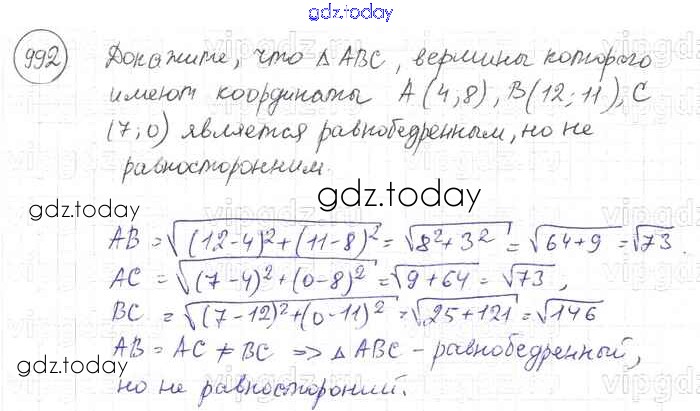 gdz.today
992 Докажите, что △ ABC, вершины которого
имеют координаты A(4;8), B(12;11), C
(7;0) является равнобедренным, но не
равносторонним.
gdz.today
gdz.today
AB = √(12-4)²+(11-8)² = √8²+3² = √64+9 = √73
AC = √(7-4)²+(0-8)² = √9+64 = √73,
BC = √(7-12)²+(0-11)² = √25+121 = √146
gdz.today
AB = AC ≠ BC => △ ABC - равнобедренный,
но не равносторонний.
gdz.today